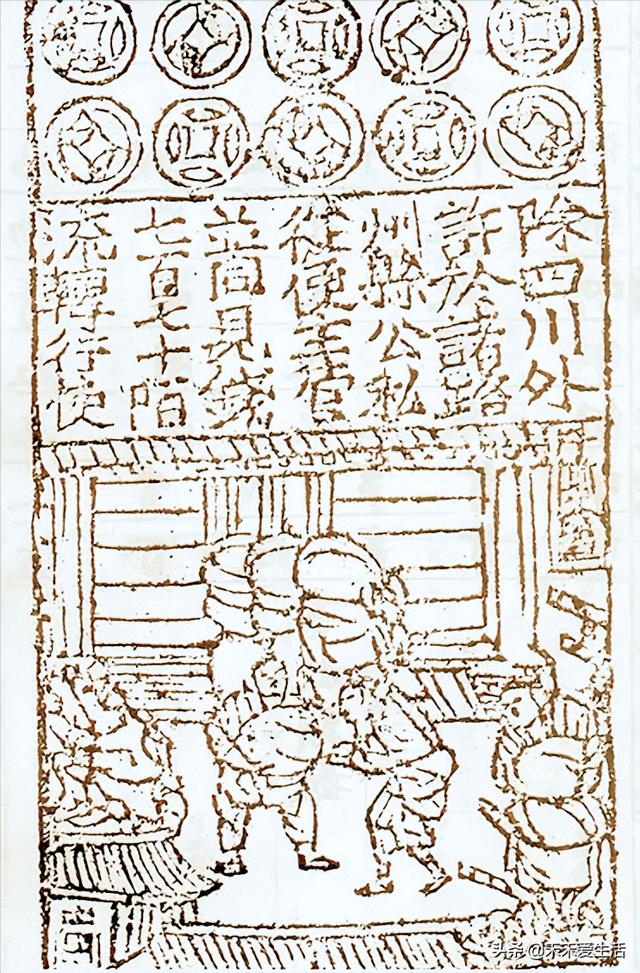 除四川外
許於諸路
州縣公私
從便主管
並同見錢
七百七十陌
流轉行使
头条 @禾禾爱生活